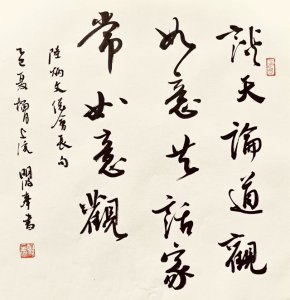 談天論道觀
如意共話家
常如意觀
陸炳文會長句
夏月上浣書